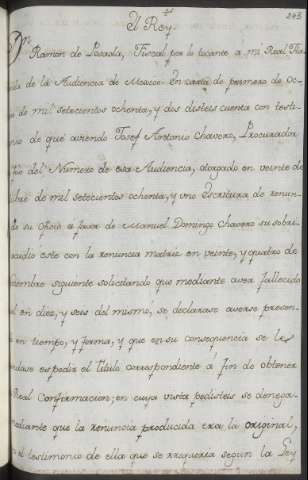 245
El Rey.
Dn. Ramon de Posada, Fiscal por lo tocante a mi Real
de la Audiencia de Mexico. En carta de primero de Oc-
de mil setecientos ochenta, y dos disteis cuenta con testi-
de que aviendo Josef Antonio Chavero, Procurador
del Numero de esa Audiencia, otorgado en veinte de
de mil setecientos ochenta, y uno Escritura de renun-
de su Oficio a favor de Manuel Domingo Chavero su sobri-
acudio este con la renuncia matriz en veinte, y quatro de
siguiente solicitando que mediante aver fallecido
en diez, y seis del mismo, se declarase averse presen-
en tiempo, y forma, y que en su consequencia se le
espedir el titulo correspondiente à fin de obtener
Real Confirmacion; en cuya vista pedisteis se denega-
mediante que la renuncia producida era la original,
el testimonio de ella que se requeria segun la Ley